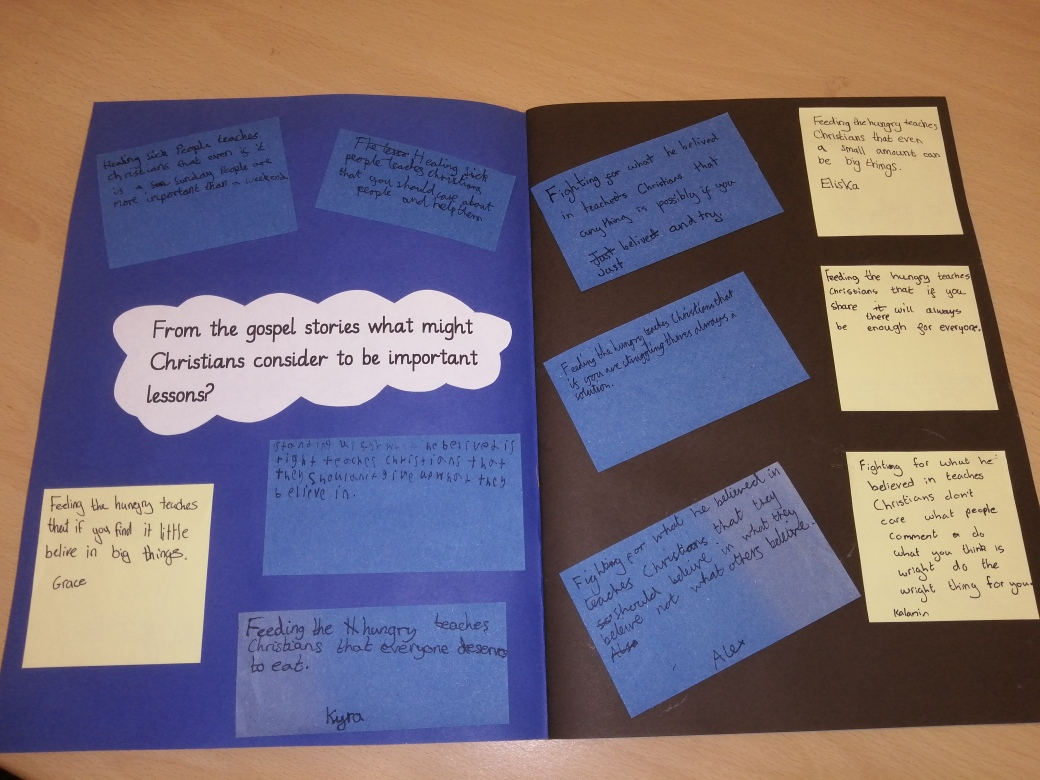 Healing sick People teaches
christians that even if it
is a sunday People are
more important than a weekend.
The lesso Healing sick
people teaches christians
that you should care about
people and help them
From the gospel stories what might
Christians consider to be important
lessons?
standing up he belived is
right teaches christians that
they shouldn't give up what they
believe in.
Feeling the hungry teaches
that if you find it little
belive in big things.
Grace
Feeding the hungry teaches
Christians that everyone deserves
to eat.
Kyra
Fighting for what he belived
in teachests Christians that
anything is possibly if you
Just belivest and try.
Just
Feeding the hungry teaches Christians that
if you are struggling theres always a
solution.
Fighting for what he believed in
teaches Christians that they
so should beleive in what they
beleive not what others beleive.
Also
Alex
Feeding the hungry teaches
Christians that even
a small amount can
be big things.
Eliska
Feeding the hungry teaches
Christians that if you
share it there will always
be enough for everyone.
Fighting for what he
believed in teaches
Christians don't
care what people
comment or do
what you think is
wright do the
wright thing for you.